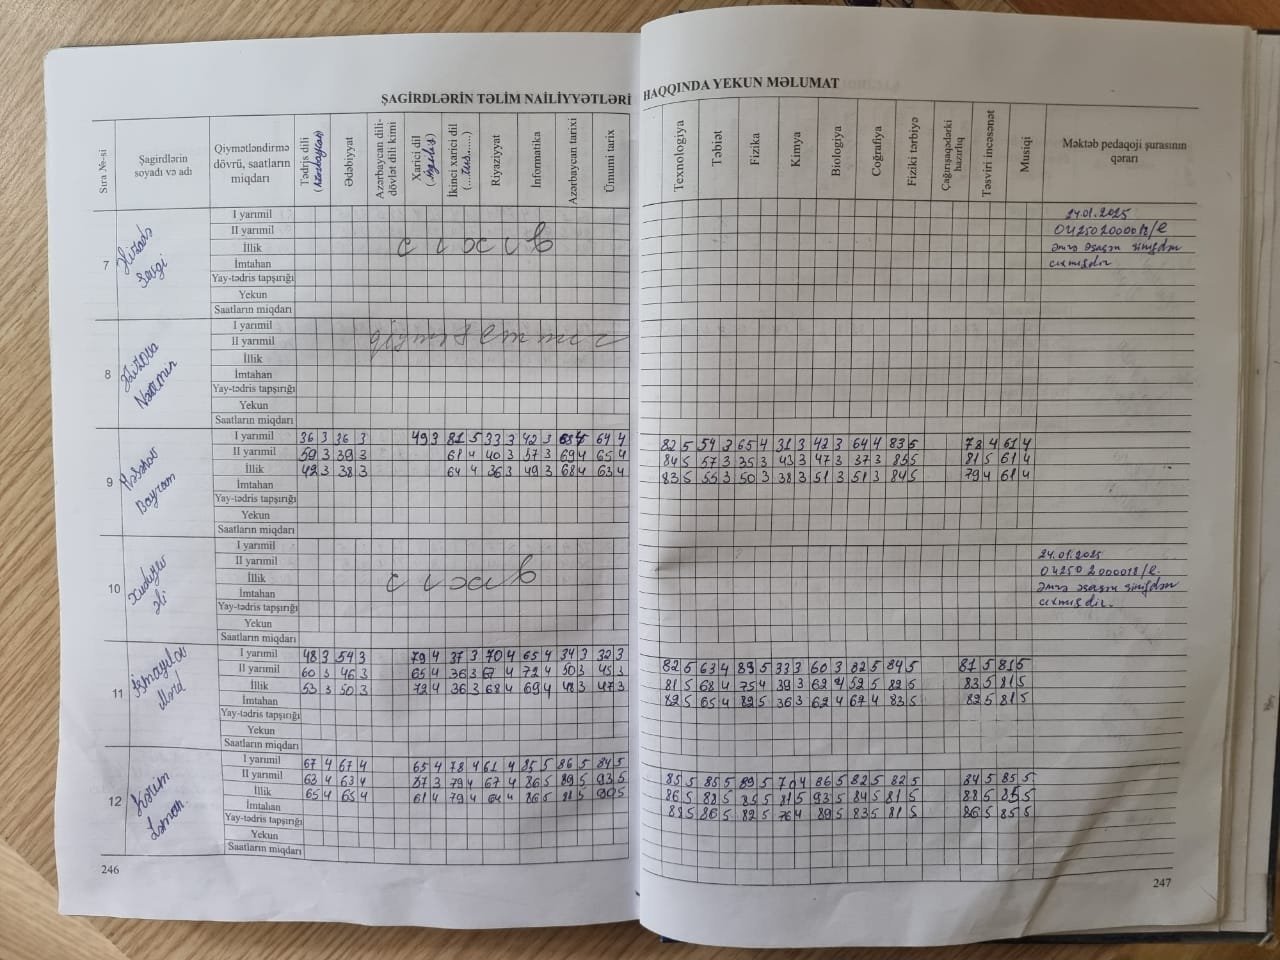 ŞAGİRDLƏRİN TƏLİM NAİLİYYƏTLƏRİ HAQQINDA YEKUN MƏLUMAT
Sıra №-si
Şagirdlərin soyadı və adı
Qiymətləndirmə dövrü, saatların miqdarı
Tədris dili (Azərbaycan)
Ədəbiyyat
Azərbaycan dili-dövlət dili kimi
Xarici dil (ingilis)
İkinci xarici dil (...rus......)
Riyaziyyat
İnformatika
Azərbaycan tarixi
Ümumi tarix
Texnologiya
Təbiət
Fizika
Kimya
Biologiya
Coğrafiya
Fiziki tərbiyə
Çağırışaqədərki hazırlıq
Təsviri incəsənət
Musiqi
Məktəb pedaqoji şurasının qərarı
7
Sevgi
I yarımil
II yarımil
İllik
İmtahan
Yay-tədris tapşırığı
Yekun
Saatların miqdarı
24.01.2025
əmrə əsasən sinifdən
çıxmışdır
8
I yarımil
II yarımil
İllik
İmtahan
Yay-tədris tapşırığı
Yekun
Saatların miqdarı
9
Bayram
I yarımil 36 3 36 3 49 3 81 5 33 3 42 3 64 4 82 5 54 3 65 4 31 3 42 3 64 4 83 5 78 4 61 4
II yarımil 59 3 39 3 61 4 40 3 57 3 69 4 65 4 84 5 57 3 35 3 43 3 47 3 37 3 85 5 81 5 61 4
İllik 42 3 38 3 64 4 36 3 49 3 68 4 63 4 83 5 55 3 50 3 38 3 51 3 51 3 84 5 79 4 61 4
İmtahan
Yay-tədris tapşırığı
Yekun
Saatların miqdarı
10
Xudiyev
Əli
I yarımil
II yarımil
İllik
İmtahan
Yay-tədris tapşırığı
Yekun
Saatların miqdarı
24.01.2025
əmrə əsasən sinifdən
çıxmışdır.
11
İsmayılov
Murad
I yarımil 48 3 54 3 79 4 37 3 70 4 65 4 34 3 32 3 82 5 63 4 89 5 33 3 60 3 82 5 84 5 81 5 81 5
II yarımil 60 3 46 3 65 4 36 3 67 4 72 4 50 3 45 3 81 5 68 4 75 4 39 3 62 4 52 5 82 5 83 5 81 5
İllik 53 3 50 3 72 4 36 3 68 4 69 4 42 3 47 3 82 5 65 4 82 5 36 3 62 4 67 4 83 5 82 5 81 5
İmtahan
Yay-tədris tapşırığı
Yekun
Saatların miqdarı
12
Kərim
Ləman
I yarımil 67 4 67 4 65 4 78 4 61 4 85 5 86 5 84 5 85 5 85 5 89 5 70 4 86 5 82 5 82 5 84 5 85 5
II yarımil 63 4 63 4 57 3 79 4 67 4 86 5 89 5 93 5 86 5 88 5 85 5 81 5 93 5 84 5 81 5 88 5 85 5
İllik 65 4 65 4 61 4 79 4 64 4 86 5 88 5 90 5 88 5 86 5 82 5 76 4 89 5 83 5 81 5 86 5 85 5
İmtahan
Yay-tədris tapşırığı
Yekun
Saatların miqdarı
246
247